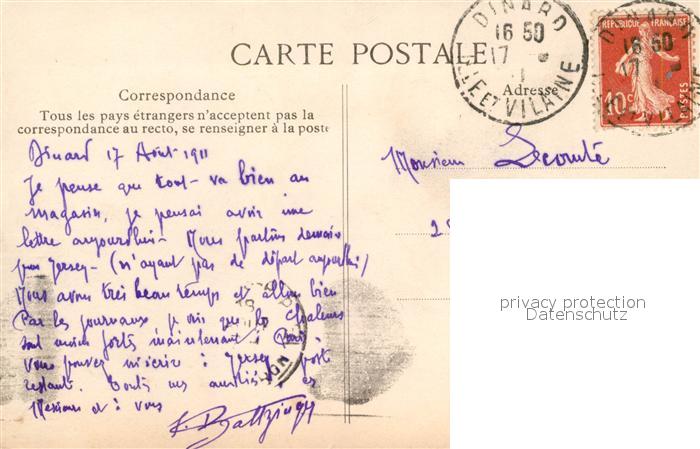 CARTE POSTALE
Correspondance
Tous les pays étrangers n'acceptent pas la
correspondance au recto, se renseigner à la poste
Adresse
DINARD
16 50
17
ILLE ET VILAINE
REPUBLIQUE FRANÇAISE
10c
POSTES
Dinard 17 Août 1911
Je pense que tout va bien au
magasin, je pensais avoir une
lettre aujourd'hui. Nous partons demain
pour Jersey (n'ayant pas de départ aujourd'hui)
Nous avons très beau temps et allons bien
Par les journaux je vois que les chaleurs
sont moins fortes maintenant à Paris
Vous pouvez m'écrire à Jersey poste
restante. Toutes nos amitiés
Messieurs et à vous
Monsieur Lecomte
2
privacy protection
Datenschutz